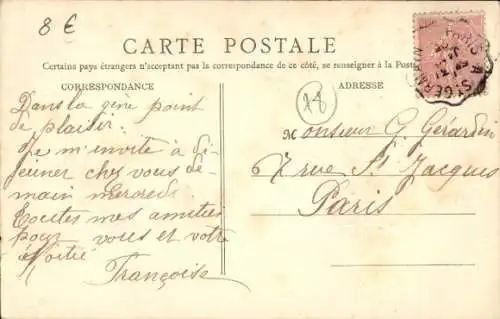 8 €
CARTE POSTALE
Certains pays étrangers n'acceptant pas la correspondance de ce côté, se renseigner à la Poste
CORRESPONDANCE
Dans la gêne point
de plaisir.
Je m'invite à dé-
jeuner chez vous de-
main Mercredi.
Toutes mes amitiés
pour vous et votre
Françoise
ADRESSE
78
Monsieur G. Gérardin
67 rue St Jacques
Paris
ST GERMAIN